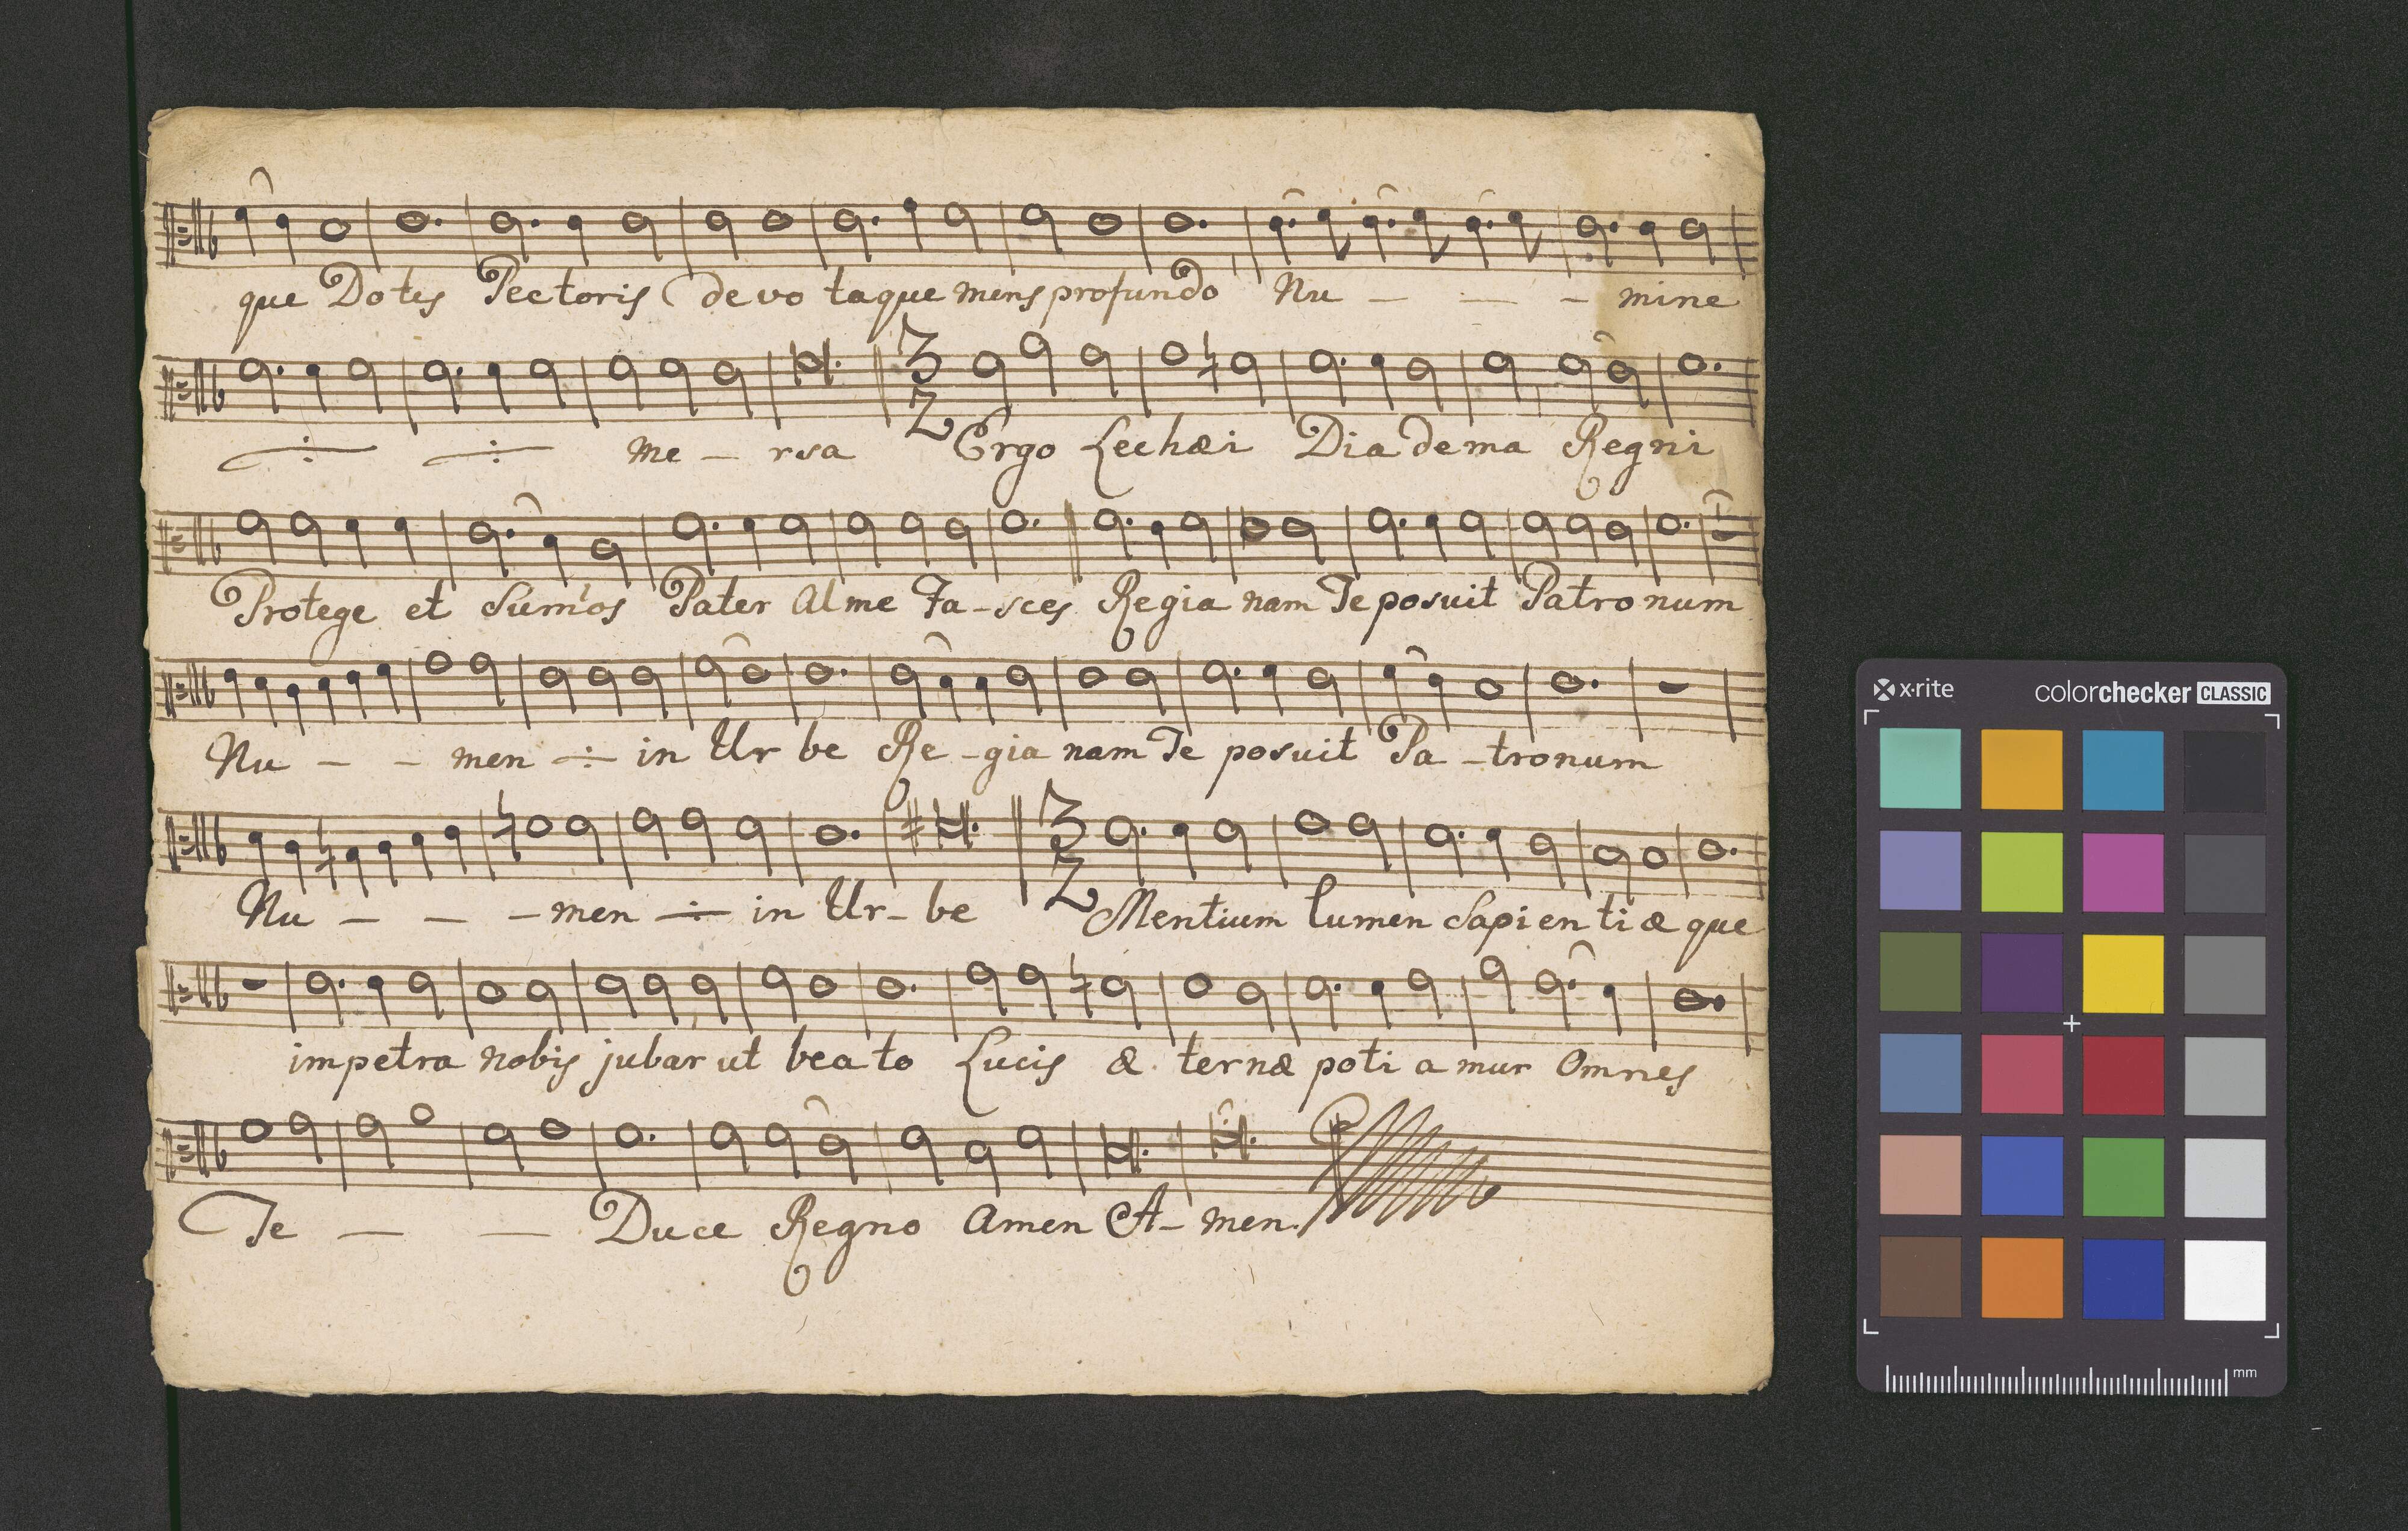 que Dotes Pectoris devo taque mens profundo Nu - - - mine
me - rsa 3 2 Ergo Lechæi Dia dema Regni
Protege et Sum̃os Pater Alme Fa-sces Regia nam Te posuit Patronum
Nu - - men in Ur be Re-gia nam Te posuit Pa-tronum
Nu - - -men in Ur-be 3 2 Mentium lumen Sapientiæ que
impetra nobis jubar ut beato Lucis æ ternæ poti amur Omnes
Te - - Duce Regno Amen A-men.
x-rite colorchecker CLASSIC
mm